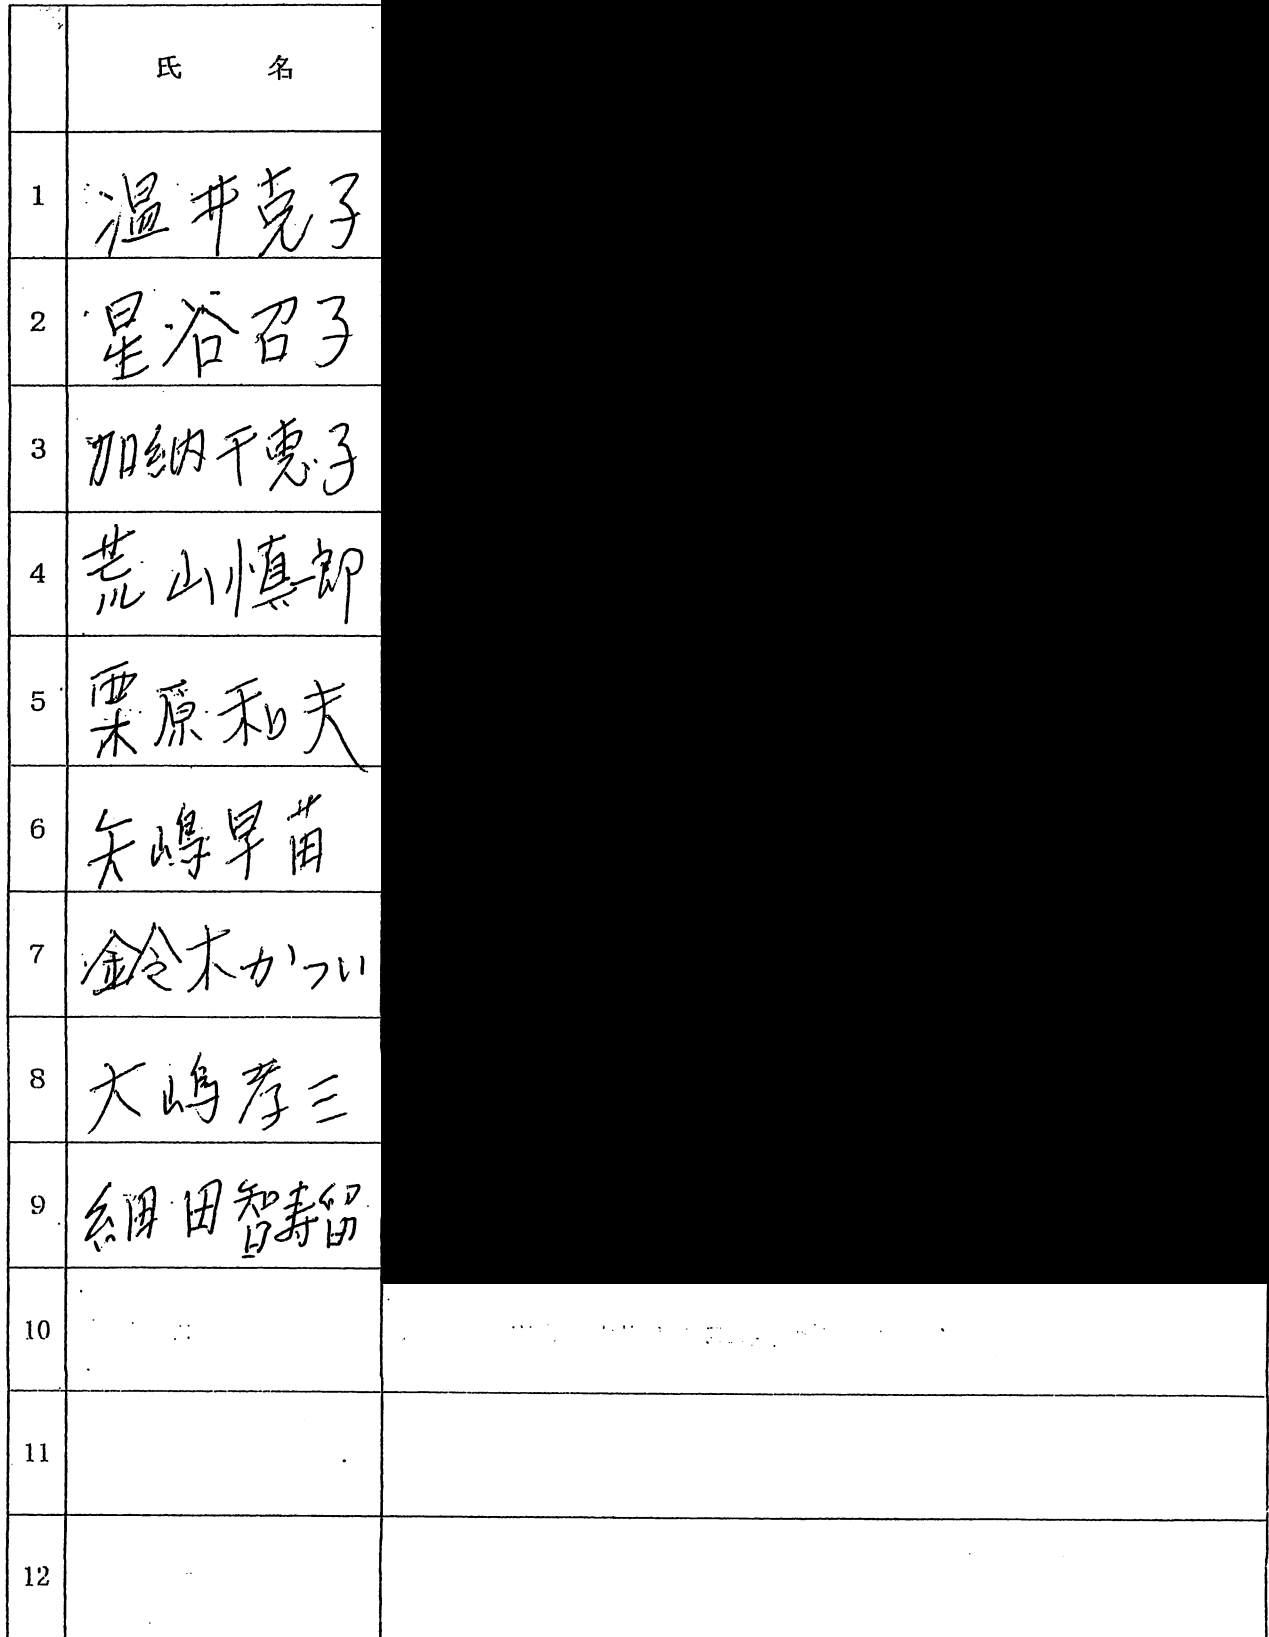 氏 名
1 温井克子
2 星谷召子
3 加納千恵子
4 荒山慎一郎
5 栗原和夫
6 矢嶋早苗
7 鈴木かつい
8 大嶋孝三
9 細田智寿留
10
11
12